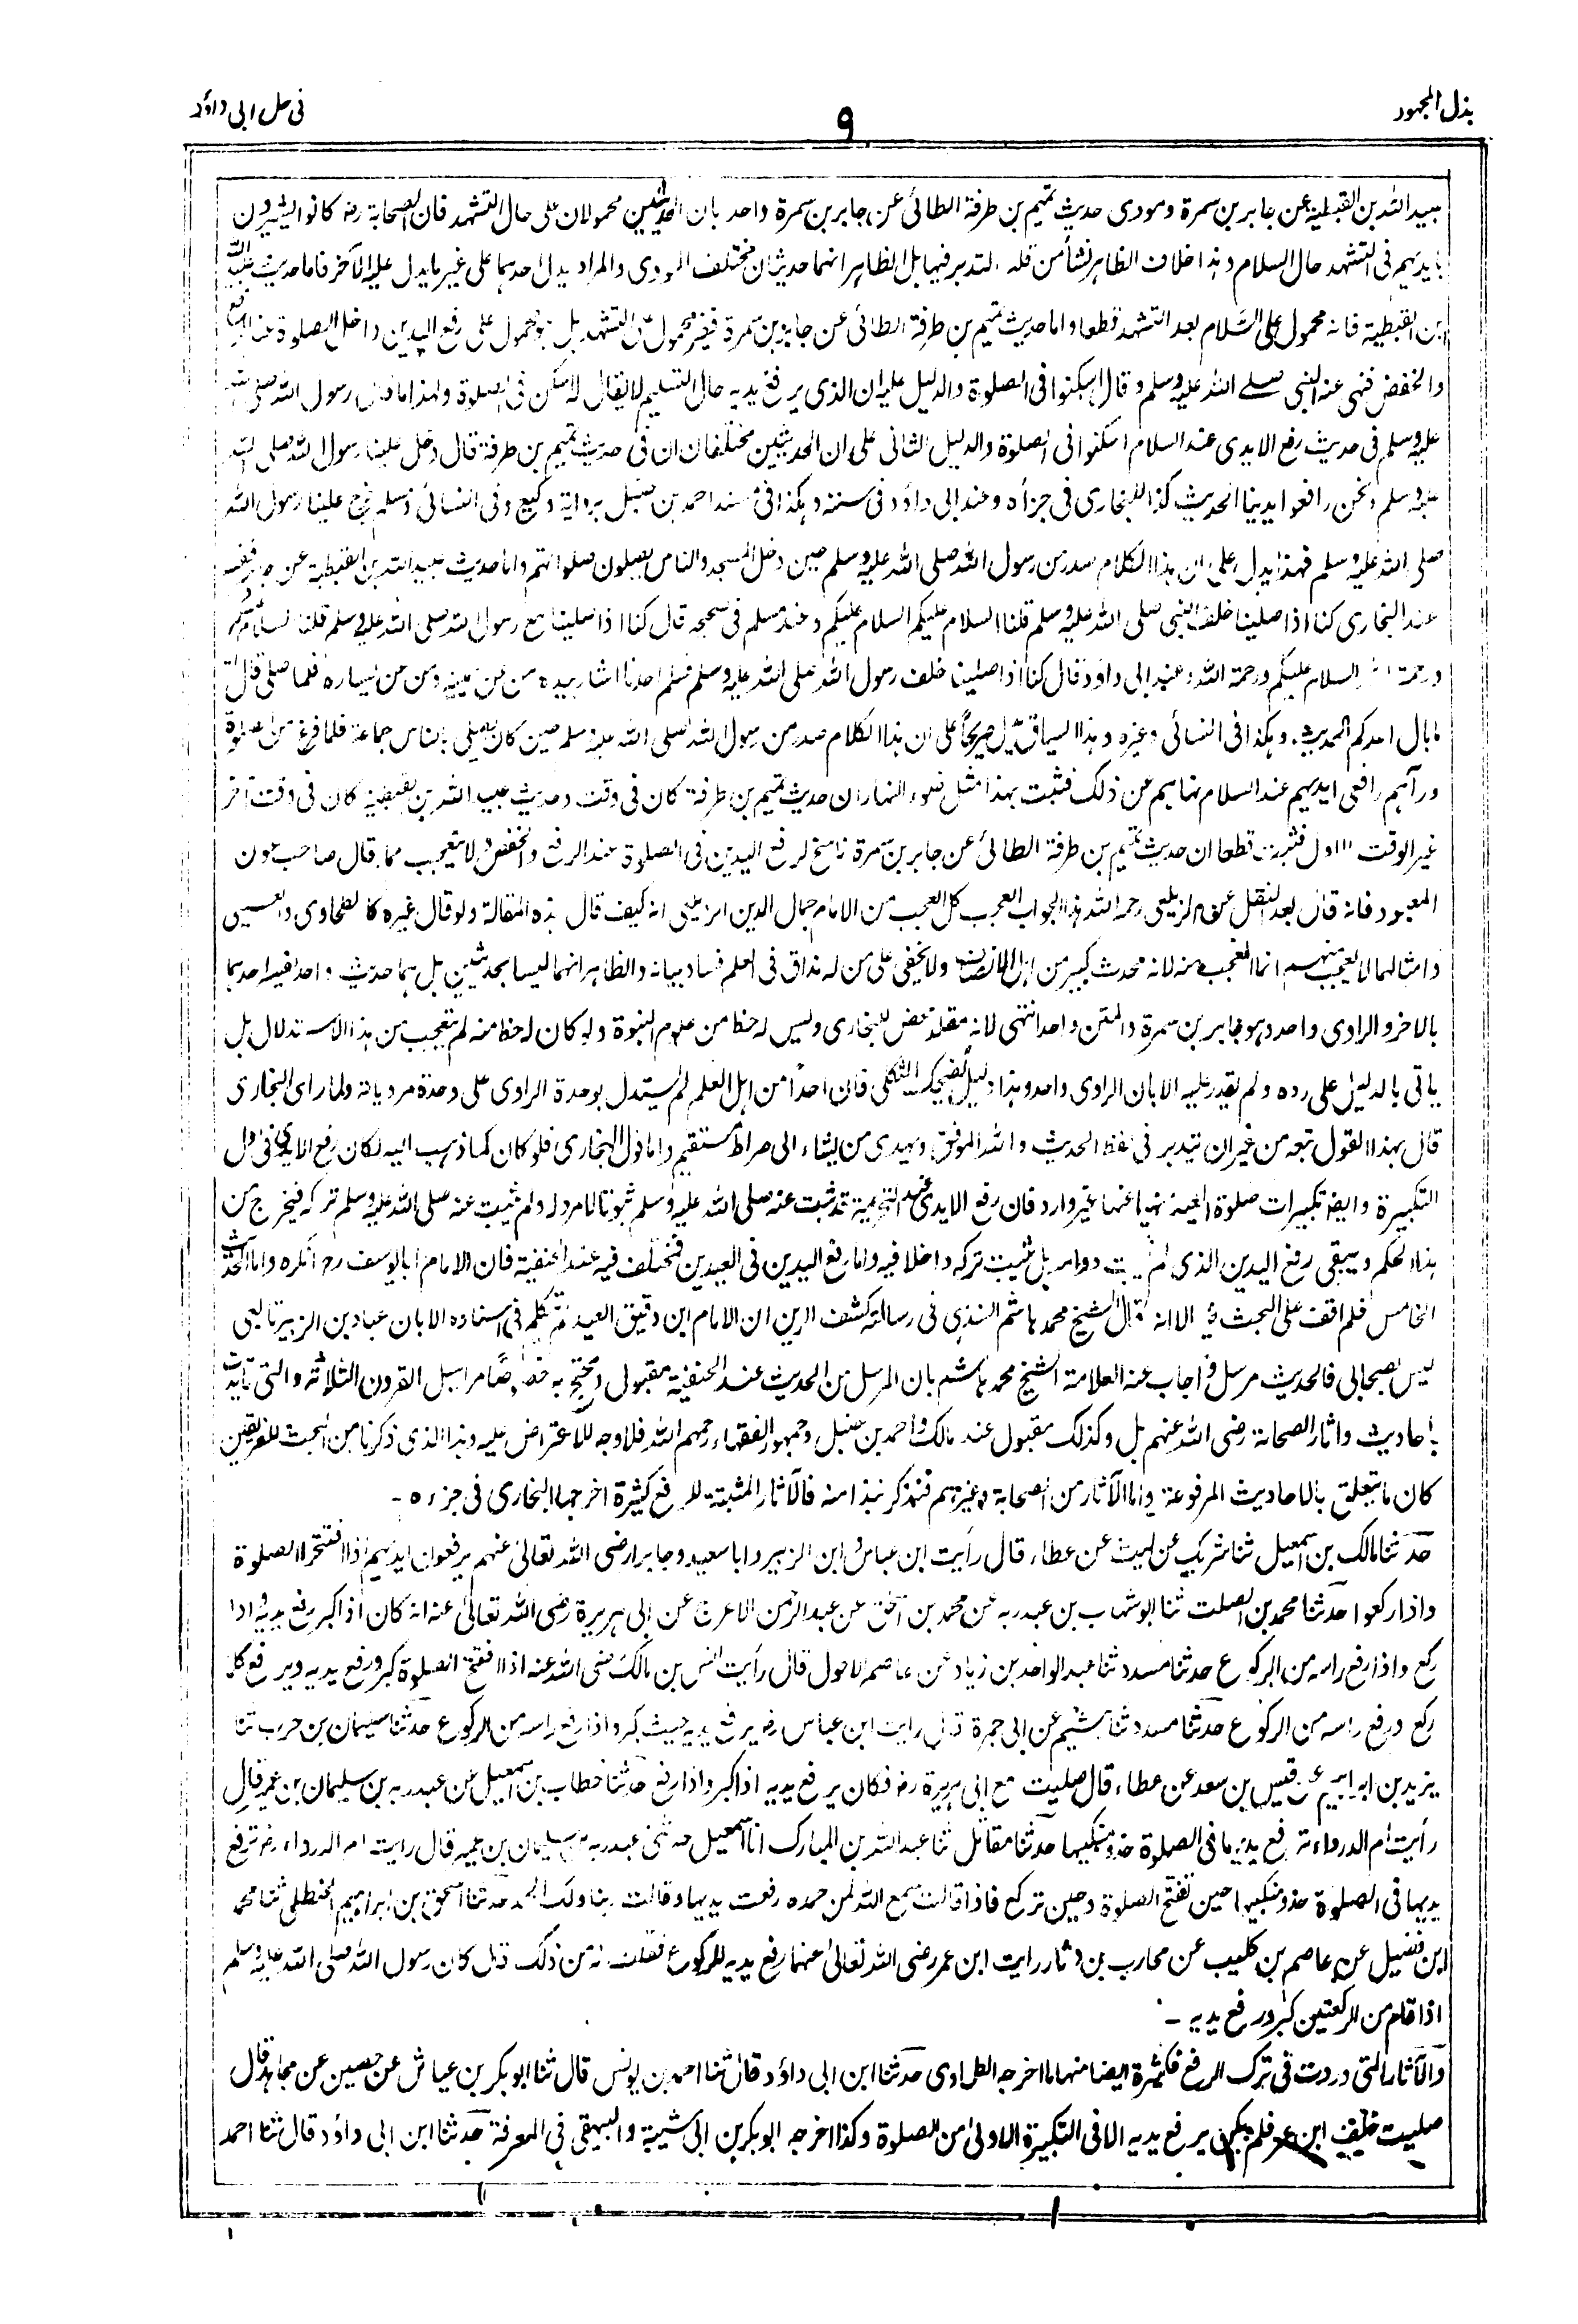 بذل المجهود
٩
فى حل ابى داؤد
عبيد الله بن القبطية عن جابر بن سمرة ومودى حديث تميم بن طرفة الطائى عن جابر بن سمرة واحد بان الحديثين محمولان على حال التشهد فان الصحابة رضه كانوا يشيرون
بايديهم فى التشهد حال السلام وهذا خلاف الظاهر نشأ من قلة التدبر فيها بل الظاهر انهما حديثان مختلف المودى والمراد يدل احدهما على غير ما يدل عليه الآخر فاما حديث عبيد الله
ابن القبطية فانه محمول على السلام بعد التشهد قطعا واما حديث تميم بن طرفة الطائى عن جابر بن سمرة فغير محمول على التشهد بل هو محمول على رفع اليدين داخل الصلوة عند الرفع
والخفض فنهى عنه النبى صلے الله عليه وسلم وقال اسكنوا فى الصلوة والدليل عليه ان الذى يرفع يديه حال التسليم لا يقال له اسكن فى الصلوة ولهذا ما قال رسول الله صلى الله
عليه وسلم فى حديث رفع الايدى عند السلام اسكنوا فى الصلوة والدليل الثانى على ان الحديثين مختلفان ان فى حديث تميم بن طرفة قال دخل علينا رسول الله صلى الله
عليه وسلم ونحن رافعوا ايدينا الحديث كذا للبخارى فى جزأه وعند ابى داؤد فى سننه وهكذا فى مسند احمد بن حنبل برواية وكيع وفى النسائى ومسلم خرج علينا رسول الله
صلى الله عليه وسلم فهذا يدل على ان هذا الكلام صدر من رسول الله صلى الله عليه وسلم حين دخل المسجد والناس يصلون صلواتهم واما حديث عبيد الله بن القبطية عن جابر ففيه
عند البخارى كنا اذا صلينا خلف النبى صلى الله عليه وسلم قلنا السلام عليكم السلام عليكم وعند مسلم فى صحيحه قال كنا اذا صلينا مع رسول الله صلى الله عليه وسلم قلنا السلام عليكم
ورحمة الله السلام عليكم ورحمة الله وعند ابى داؤد قال كنا اذا صلينا خلف رسول الله صلى الله عليه وسلم فسلم احدنا اشار بيده من عن يمينه ومن عن يساره فلما صلى قال
ما بال احدكم الحديث. وهكذا فى النسائى وغيره وهذا السياق يدل صريحاً على ان هذا الكلام صدر من رسول الله صلى الله عليه وسلم حين كان يصلى بالناس جماعة فلما فرغ عن صلوة
ورآهم رافعى ايديهم عند السلام نهاهم عن ذلك فثبت بهذا مثل ضوء النهار ان حديث تميم بن طرفة كان فى وقت وحديث عبيد الله بن القبطية كان فى وقت آخر
غير الوقت الاول فثبت قطعا ان حديث تميم بن طرفة الطائى عن جابر بن سمرة ناسخ لرفع اليدين فى الصلوة عند الرفع والخفض ولا تتعجب مما قال صاحب عون
المعبود فانه قال بعد النقل عن الزيلعى رحمه الله هذا الجواب العجب كل العجب من الامام جمال الدين الزيلعى انه كيف قال هذه المقالة ولو قال غيره كالطحاوى والعينى
وامثالهما لا يعجب منهم انما العجب منه لانه محدث كبير من اهل الانصاف ولا يخفى على من له مذاق فى العلم فساد بيانه والظاهر انهما ليسا بحديثين بل هما حديث واحد فسر احدهما
بالاخر والراوى واحد وهو جابر بن سمرة والمتن واحد انتهى لانه مقلد محض للبخارى وليس له حظ من علوم النبوة ولو كان له حظ منه لم يتعجب من هذا الاستدلال بل
ياتى بالدليل على رده ولم يقدر عليه الا بان الراوى واحد وهذا دليل يضحك الثكلى فان احداً من اهل العلم لم يستدل بوحدة الراوى على وحدة مروياته ولما راى البخارى
قال بهذا القول تبعه من غير ان يتدبر فى لفظ الحديث والله الموفق ويهدى من يشاء الى صراط مستقيم واما قول البخارى فلو كان كما ذهب اليه لكان رفع الايدى فى اول
التكبيرة وايضا تكبيرات صلوة العيد منهيا عنها غير وارد فان رفع الايدى عند التحريمة قد ثبت عنه صلى الله عليه وسلم ثبوتا لا مرد له ولم يثبت عنه صلى الله عليه وسلم تركه فيخرج من
هذا الحكم ويبقى رفع اليدين الذى لم يثبت دوامه بل ثبت تركه داخلا فيه واما رفع اليدين فى العيدين فمختلف فيه عند الحنفية فان الامام ابا يوسف رحه انكره واما الحديث
الخامس فلم اقف على البحث فيه الا انه قال الشيخ محمد هاشم السندى فى رسالته كشف الرين ان الامام ابن دقيق العيد لم يتكلم فى اسناده الا بان عباد بن الزبير تابعى
ليس بصحابى فالحديث مرسل واجاب عنه العلامة الشيخ محمد هاشم بان المرسل من الحديث عند الحنفية مقبول ومحتج به خصوصًا مراسيل القرون الثلاثة والتى تأيدت
باحاديث واثار الصحابة رضى الله عنهم بل وكذلك مقبول عند مالك واحمد بن حنبل وجمهور الفقهاء رحمهم الله فلا وجه للاعتراض عليه وهذا الذى ذكرنا من البحث للفريقين
كان ما يتعلق بالاحاديث المرفوعة واما الآثار من الصحابة وغيرهم فنذكر نبذا منه فالآثار المثبتة للرفع كثيرة اخرجها البخارى فى جزءه -
حدثنا مالك بن اسمعيل ثنا شريك عن ليث عن عطاء قال رأيت ابن عباس وابن الزبير وابا سعيد وجابرا رضى الله تعالى عنهم يرفعون ايديهم اذا افتتحوا الصلوة
واذا ركعوا حدثنا محمد بن الصلت ثنا ابو شهاب بن عبد ربه عن محمد بن اسحق عن عبد الرحمن الاعرج عن ابى هريرة رضى الله تعالى عنه انه كان اذا كبر رفع يديه واذا
ركع واذا رفع راسه من الركوع حدثنا مسدد ثنا عبد الواحد بن زياد عن عاصم الاحول قال رأيت انس بن مالك رضى الله عنه اذا افتتح الصلوة كبر ورفع يديه ويرفع كلما
ركع ورفع راسه من الركوع حدثنا مسدد ثنا هشيم عن ابى جمرة قال رايت ابن عباس رضه يرفع يديه حيث كبر واذا رفع راسه من الركوع حدثنا سليمان بن حرب ثنا
يزيد بن ابراهيم عن قيس بن سعد عن عطاء قال صليت مع ابى هريرة رضه فكان يرفع يديه اذا كبر واذا رفع حدثنا خطاب بن اسمعيل عن عبد ربه بن سليمان بن عمير قال
رأيت ام الدرداء ترفع يديها فى الصلوة حذو منكبيها حدثنا مقاتل ثنا عبد الله بن المبارك انا اسمعيل حدثنى عبد ربه بن سليمان بن عمير قال رايت ام الدرداء رضه ترفع
يديها فى الصلوة حذو منكبيها حين تفتتح الصلوة وحين تركع فاذا قالت سمع الله لمن حمده رفعت يديها وقالت ربنا ولك الحمد حدثنا اسحق بن ابراهيم الحنظلى ثنا محمد
ابن فضيل عن عاصم بن كليب عن محارب بن دثار رايت ابن عمر رضى الله تعالى عنهما رفع يديه للركوع فقلت له من ذلك قال كان رسول الله صلى الله عليه وسلم
اذا قام من الركعتين كبر ورفع يديه -
والآثار التى وردت فى ترك الرفع فكثيرة ايضا منها ما اخرجه الطحاوى حدثنا ابن ابى داؤد قال ثنا احمد بن يونس قال ثنا ابو بكر بن عياش عن حصين عن مجاهد قال
صليت خلف ابن عمر فلم يكن يرفع يديه الا فى التكبيرة الاولى من الصلوة وكذا اخرجه ابو بكر بن ابى شيبة والبيهقى فى المعرفة حدثنا ابن ابى داؤد قال ثنا احمد